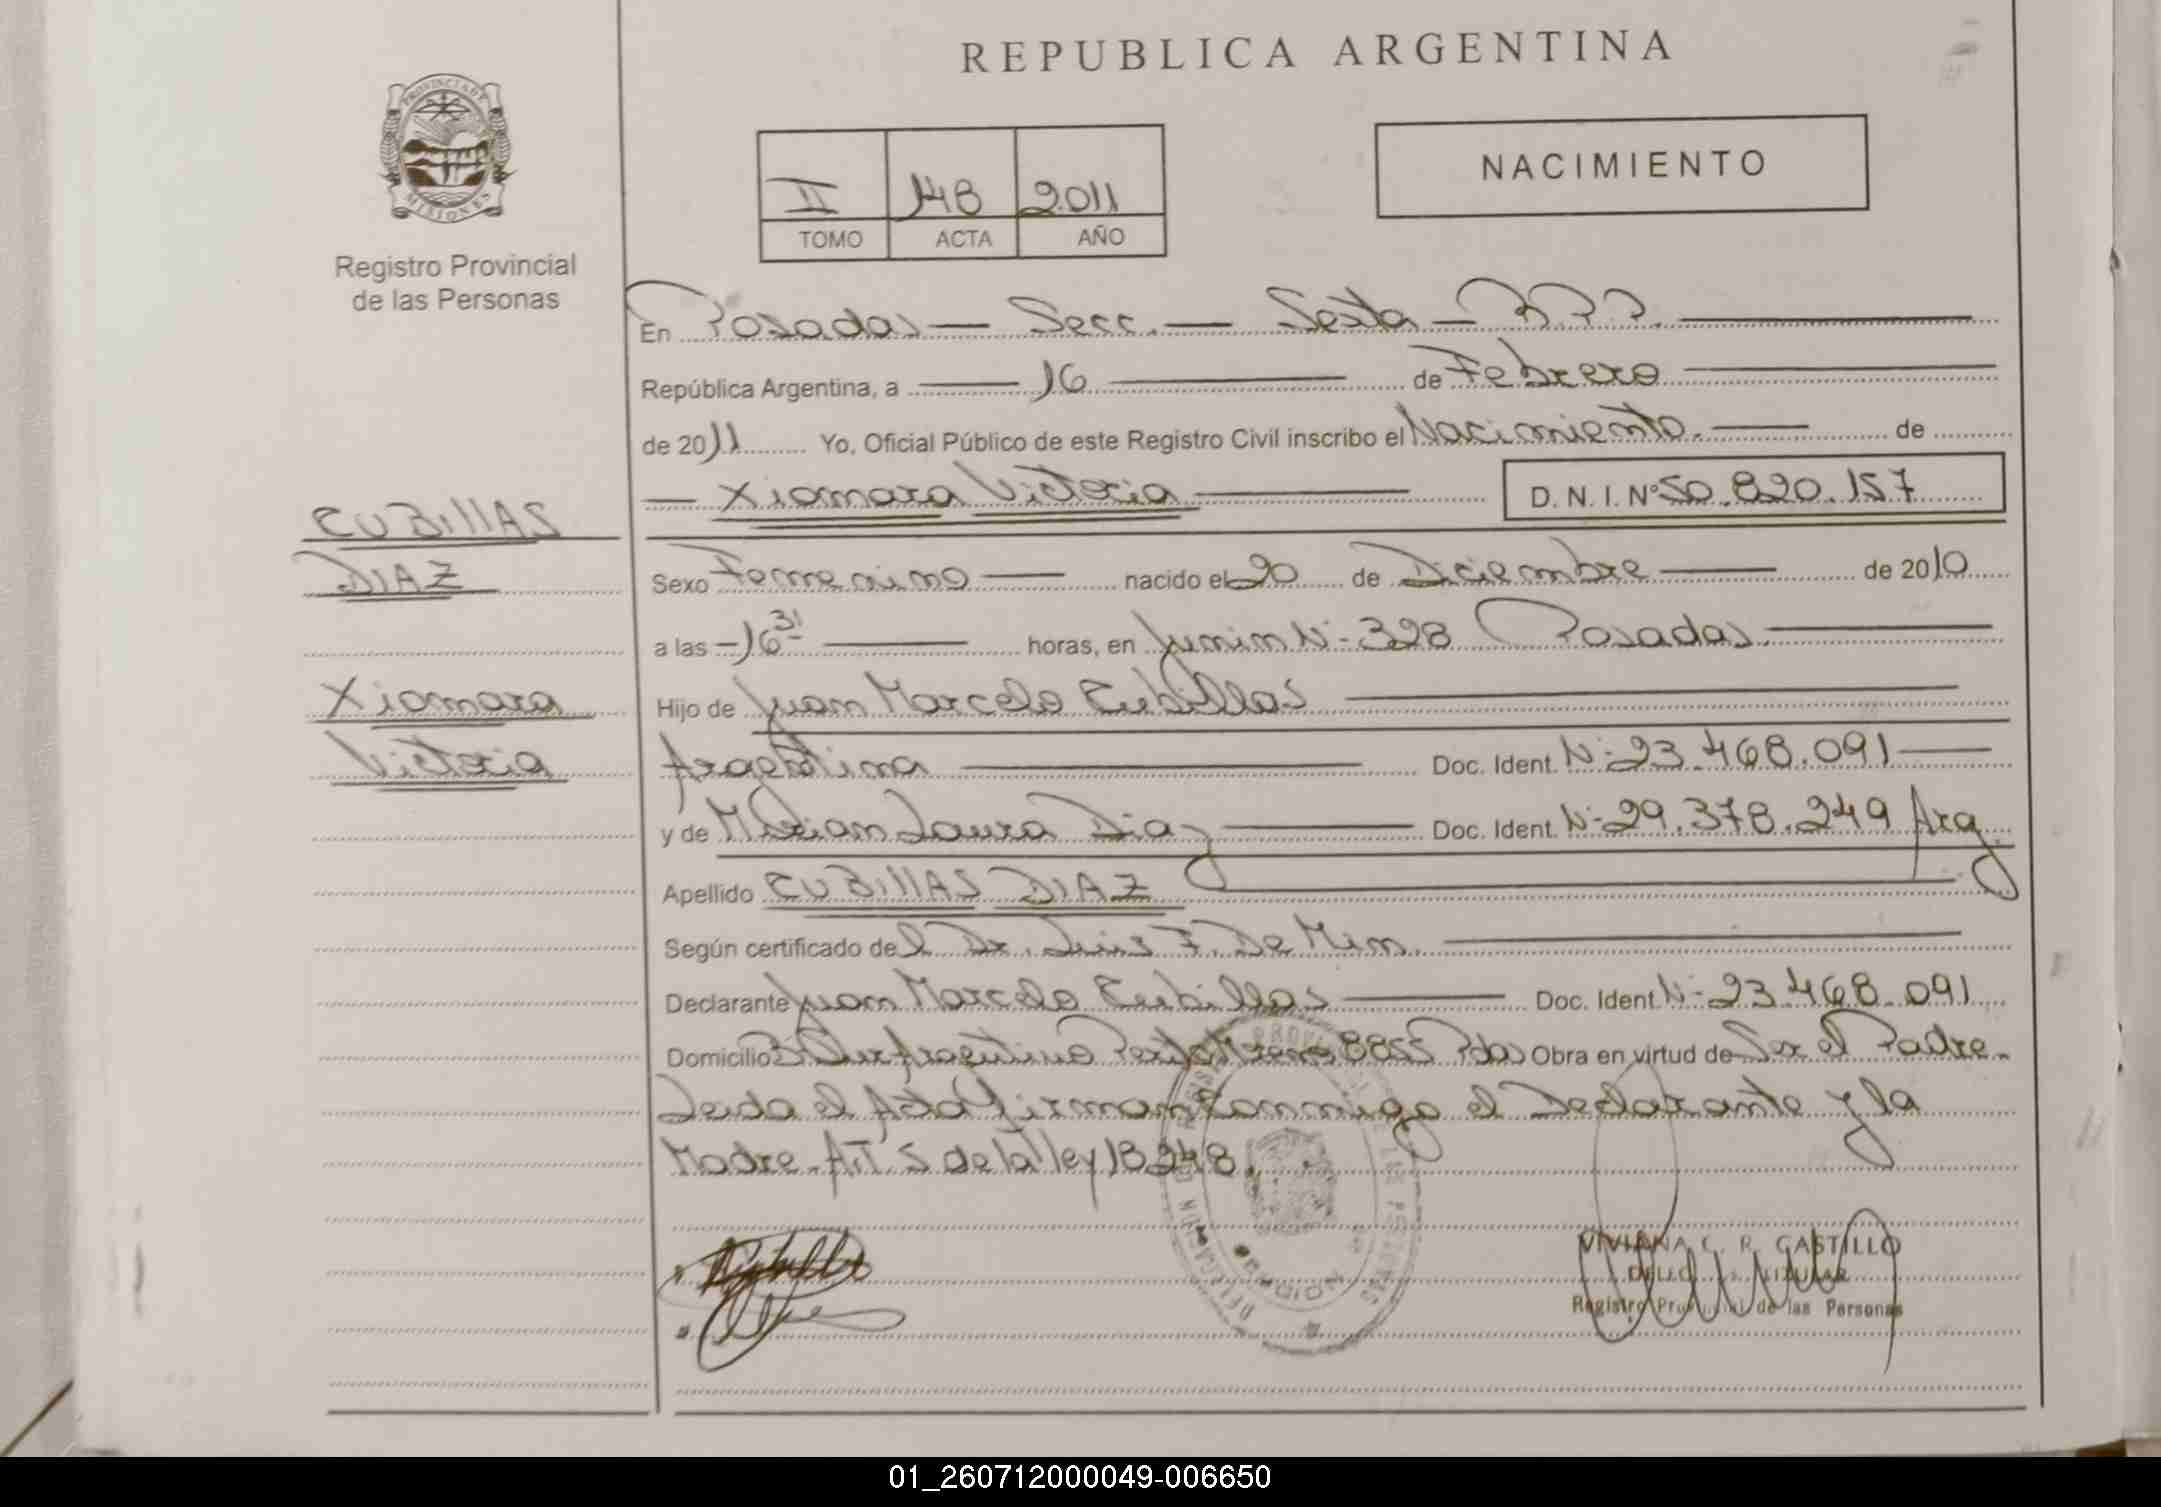 REPUBLICA ARGENTINA
PROVINCIA DE
MISIONES
Registro Provincial
de las Personas
II 148 2011
TOMO ACTA AÑO
NACIMIENTO
En Posadas — Secc. — Sexta — R.P.P.
República Argentina, a 16 de Febrero
de 2011 Yo, Oficial Público de este Registro Civil inscribo el Nacimiento. de
Xiomara Victoria D.N.I. Nº 50.820.157
CUBIllAS
DIAZ
Xiomara
Victoria
Sexo Femenino nacido el 20 de Diciembre de 2010
a las 16 31 horas, en Junin Nº 328 Posadas
Hijo de Juan Marcelo Cubillas
Argentina Doc. Ident. Nº 23.468.091
y de Miriam Laura Diaz Doc. Ident. Nº 29.378.249 Arg
Apellido CUBIllAS DIAZ
Según certificado del Dr. Luis F. De Mim.
Declarante Juan Marcelo Cubillas Doc. Ident. Nº 23.468.091
Domicilio Perito Moreno 8823 Pdas Obra en virtud de Ser el Padre.
Leida el Acta Firman conmigo el Declarante y la
Madre. Art 2 de la ley 18248.
VIVIANA C. R. CASTILLO
TITULAR
Registro Provincial de las Personas
01_260712000049-006650